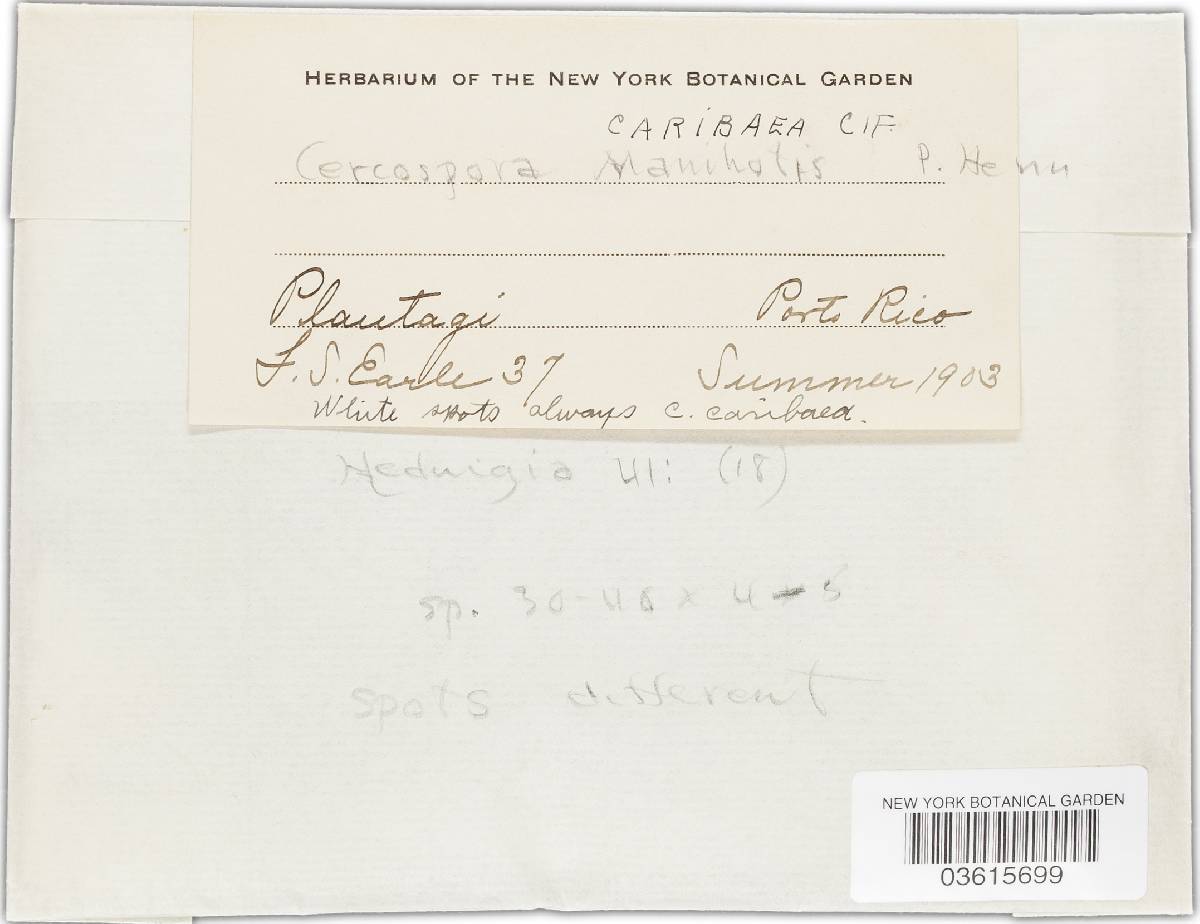 HERBARIUM OF THE NEW YORK BOTANICAL GARDEN
CARIBAEA CIF.
Cercospora Manihotis P. Henn
Plantagi Porto Rico
F. S. Earle 37 Summer 1903
White spots always C. caribaea.
Hedwigia 41: (18)
sp. 30-40 x 4-5
spots different
NEW YORK BOTANICAL GARDEN
03615699